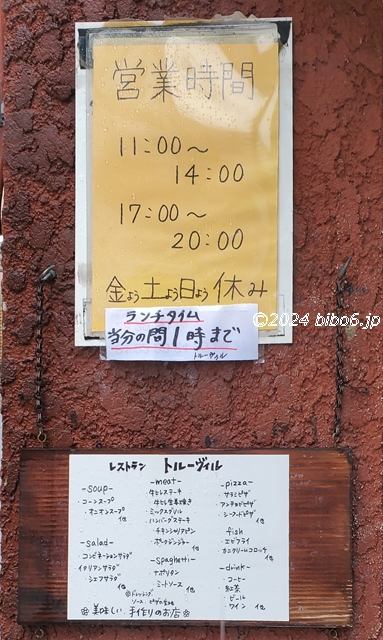 営業時間
11:00～
14:00
17:00～
20:00
金よう土よう日よう休み
ランチタイム
当分の間1時まで
トルーヴィル
©2024 bibo6.jp
レストラン トルーヴィル
-soup-
・コーンスープ
・オニオンスープ
他
-salad-
・コンビネーションサラダ
・イタリアンサラダ
・シェフサラダ
他
-meat-
・牛ヒレステーキ
・牛ヒレ生姜焼き
・ミックスグリル
・ハンバーグステーキ
・チキンカツ
・ポークジンジャー
他
-spaghetti-
・ナポリタン
・ミートソース
他
-pizza-
・サラミピザ
・アンチョビピザ
・シーフードピザ
他
fish
・エビフライ
・カニクリームコロッケ
他
-drink-
・コーヒー
・紅茶
・ビール
・ワイン 他
◎ドレッシング
ソース
美味しい手作りのお店